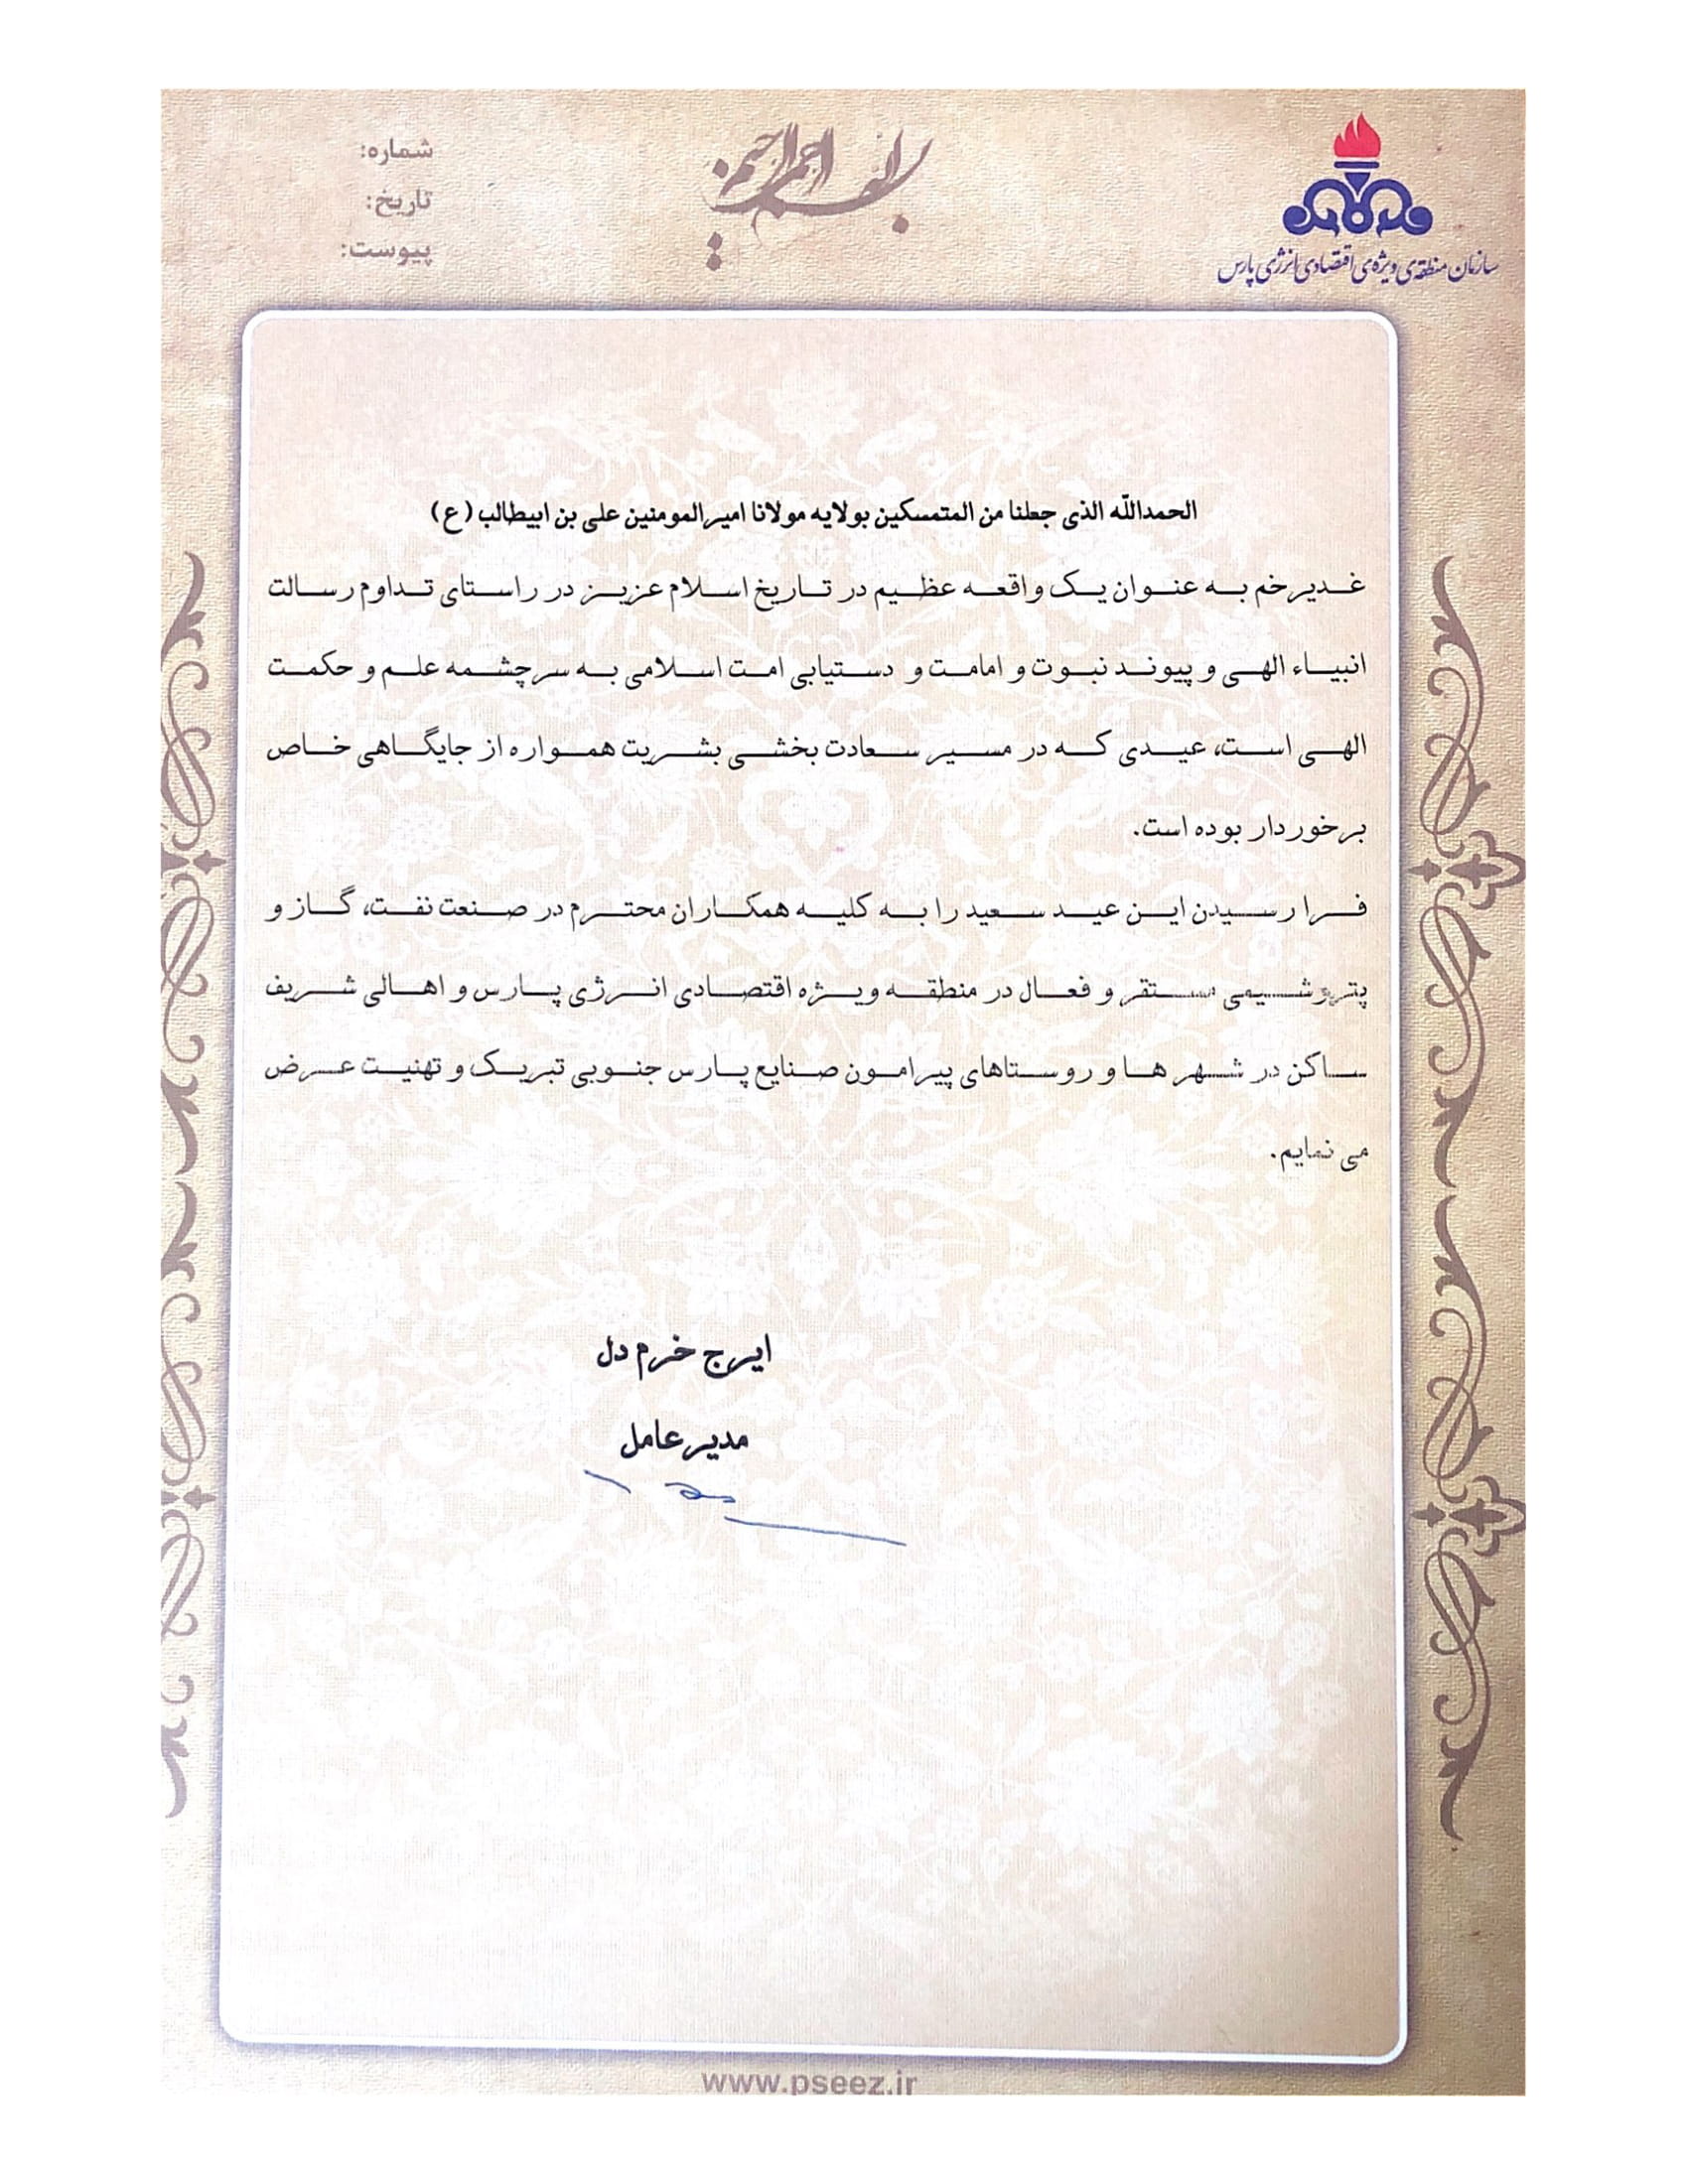 بسم الله الرحمن الرحیم
سازمان منطقه‌ی ویژه‌ی اقتصادی انرژی پارس
شماره:
تاریخ:
پیوست:
الحمدالله الذی جعلنا من المتمسکین بولایه مولانا امیرالمومنین علی بن ابیطالب (ع)
غدیرخم به عنوان یک واقعه عظیم در تاریخ اسلام عزیز در راستای تداوم رسالت
انبیاء الهی و پیوند نبوت و امامت و دستیابی امت اسلامی به سرچشمه علم و حکمت
الهی است، عیدی که در مسیر سعادت بخشی بشریت همواره از جایگاهی خاص
برخوردار بوده است.
فرا رسیدن این عید سعید را به کلیه همکاران محترم در صنعت نفت، گاز و
پتروشیمی مستقر و فعال در منطقه ویژه اقتصادی انرژی پارس و اهالی شریف
ساکن در شهر ها و روستاهای پیرامون صنایع پارس جنوبی تبریک و تهنیت عرض
می نمایم.
ایرج خرم دل
مدیرعامل
www.pseez.ir